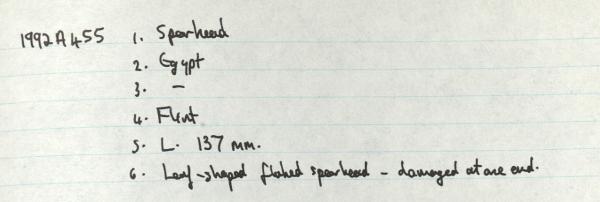 1992A455 1. Spearhead
2. Egypt
3. –
4. Flint
5. L. 137 mm.
6. Leaf-shaped flaked spearhead – damaged at one end.